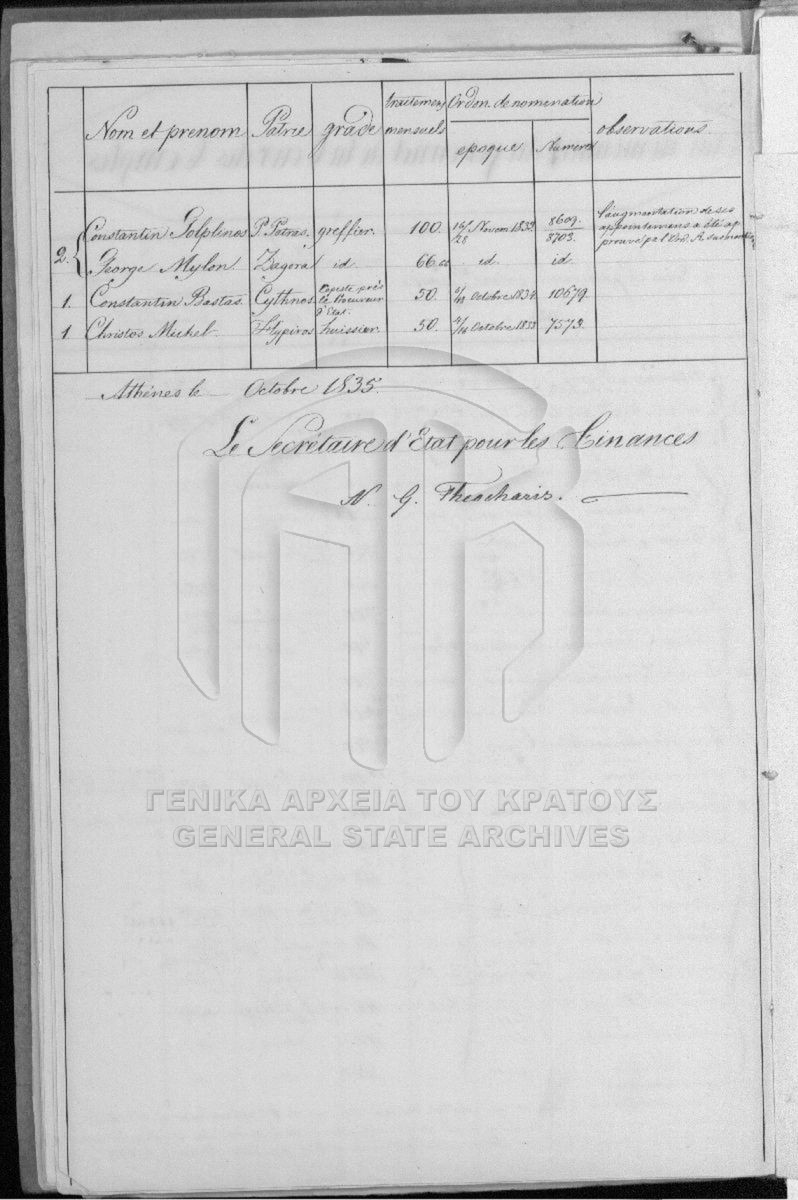 Nom et prenom Patrie grade traitemens mensuels Ordon. de nomination epoque Numero observations
2. Constantin P. Patras. greffier. 100. 16/28 Novem 1833 8609/8703. l'augmentation de ses appointemens a été approuvé par l'Ord. R.
George Mylon. Zagora id 66. id. id.
1. Constantin Bastas. Cythnos. Copiste près le Procureur d'Etat. 50. Octobre 1834. 10679.
1 Christos Michel. huissier. 50. Octobre 1833 7573.
Athénes le Octobre 1835.
Le Secrétaire d'Etat pour les Finances
N. G. Theocharis.
ΓΕΝΙΚΑ ΑΡΧΕΙΑ ΤΟΥ ΚΡΑΤΟΥΣ
GENERAL STATE ARCHIVES